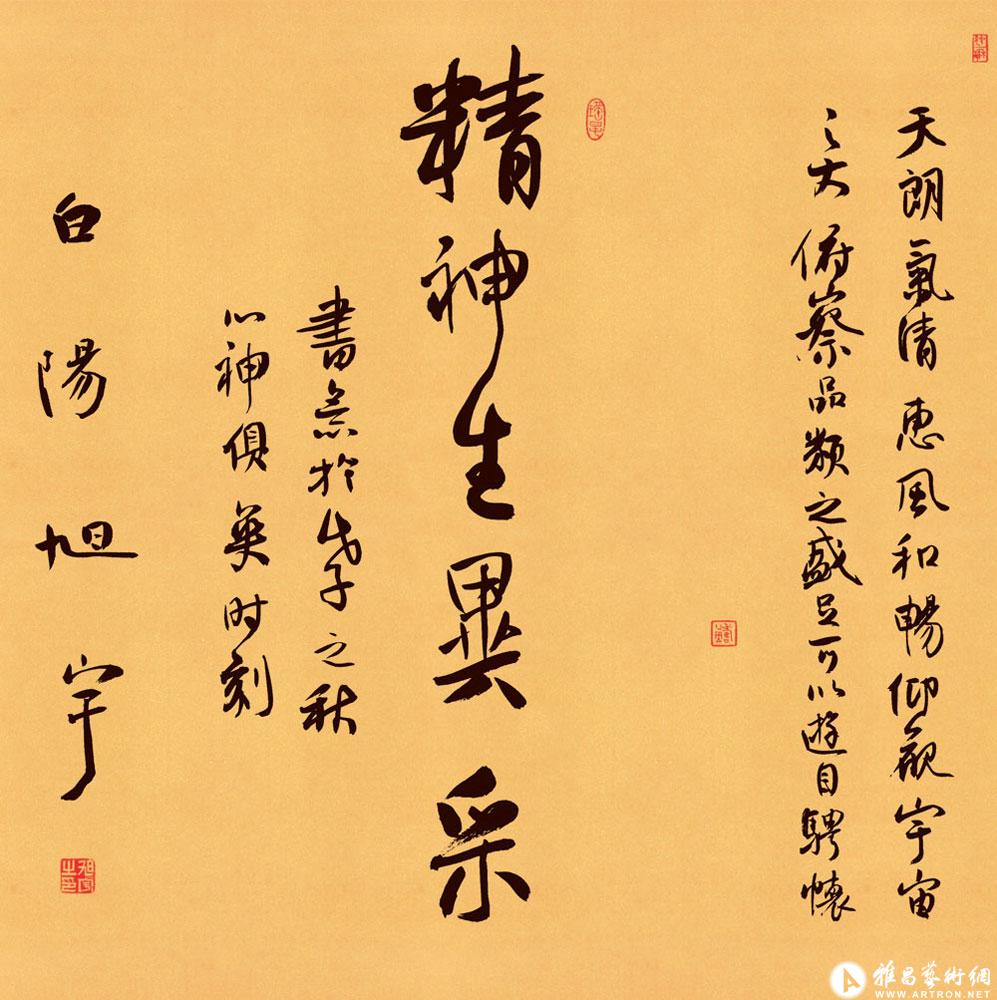 天朗氣清惠風和暢仰觀宇宙
之大俯察品類之盛足可以遊目騁懷
精神生異采
書於戊子之秋
心神俱爽时刻
白陽旭宇
旭宇之印
雅昌藝術網
WWW.ARTRON.NET